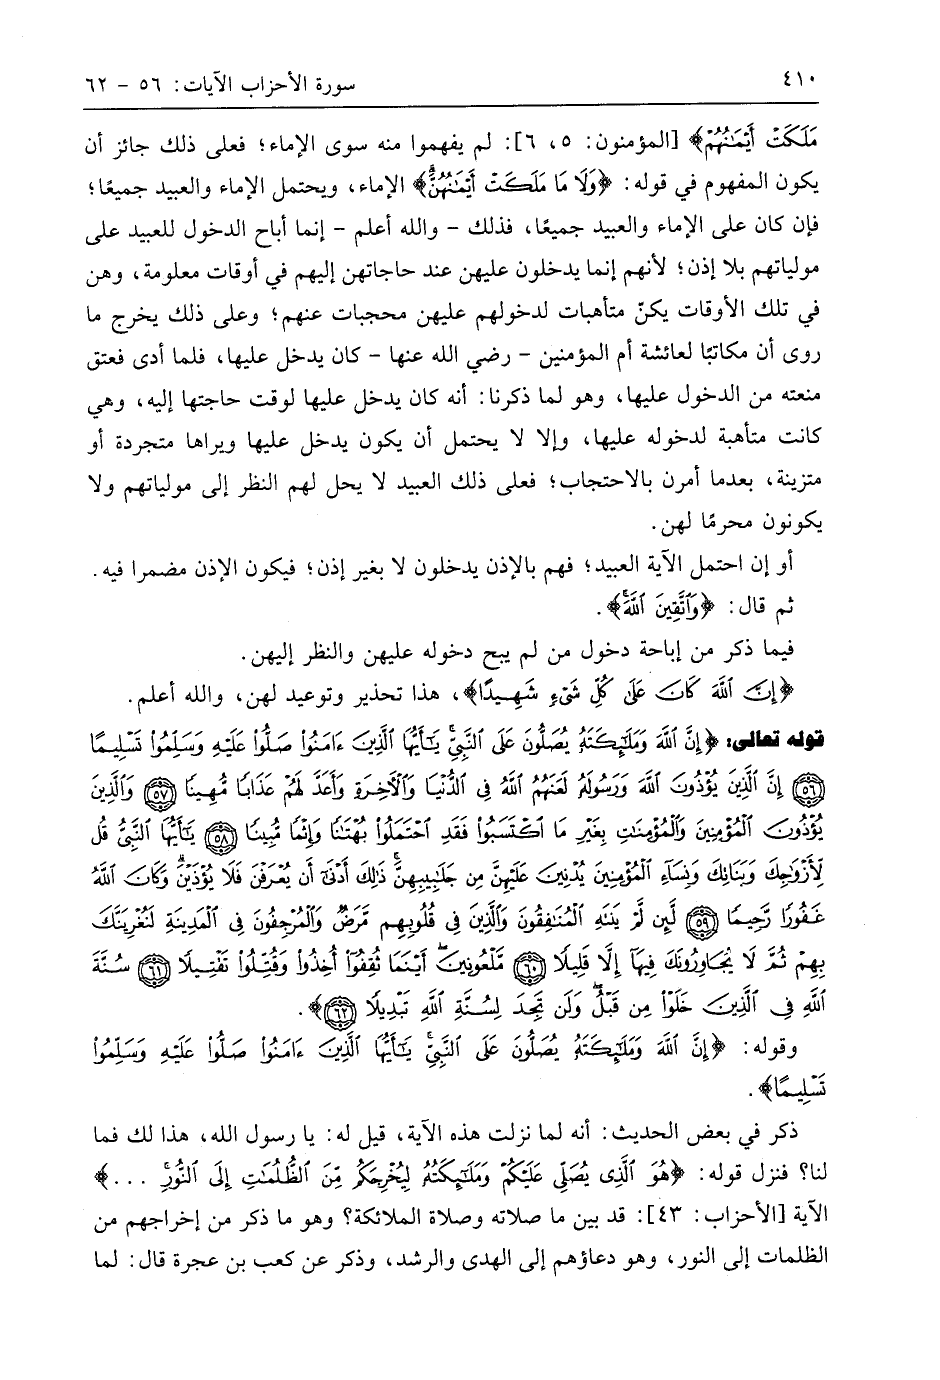 ٤١٠
سورة الأحزاب الآيات: ٥٦ - ٦٢
مَلَكَتْ أَيْمَٰنُهُمْ﴾ [المؤمنون: ٥، ٦]: لم يفهموا منه سوى الإماء؛ فعلى ذلك جائز أن
يكون المفهوم في قوله: ﴿وَلَا مَا مَلَكَتْ أَيْمَٰنُهُنَّۗ﴾ الإماء، ويحتمل الإماء والعبيد جميعًا؛
فإن كان على الإماء والعبيد جميعًا، فذلك - والله أعلم - إنما أباح الدخول للعبيد على
مولياتهم بلا إذن؛ لأنهم إنما يدخلون عليهن عند حاجاتهن إليهم في أوقات معلومة، وهن
في تلك الأوقات يكنّ متأهبات لدخولهم عليهن محجبات عنهم؛ وعلى ذلك يخرج ما
روى أن مكاتبًا لعائشة أم المؤمنين - رضي الله عنها - كان يدخل عليها، فلما أدى فعتق
منعته من الدخول عليها، وهو لما ذكرنا: أنه كان يدخل عليها لوقت حاجتها إليه، وهي
كانت متأهبة لدخوله عليها، وإلا لا يحتمل أن يكون يدخل عليها ويراها متجردة أو
متزينة، بعدما أمرن بالاحتجاب؛ فعلى ذلك العبيد لا يحل لهم النظر إلى مولياتهم ولا
يكونون محرمًا لهن.
أو إن احتمل الآية العبيد؛ فهم بالإذن يدخلون لا بغير إذن؛ فيكون الإذن مضمرا فيه.
ثم قال: ﴿وَٱتَّقِينَ ٱللَّهَۚ﴾.
فيما ذكر من إباحة دخول من لم يبح دخوله عليهن والنظر إليهن.
﴿إِنَّ ٱللَّهَ كَانَ عَلَىٰ كُلِّ شَىْءٍ شَهِيدًا﴾، هذا تحذير وتوعيد لهن، والله أعلم.
قوله تعالى: ﴿إِنَّ ٱللَّهَ وَمَلَٰٓئِكَتَهُۥ يُصَلُّونَ عَلَى ٱلنَّبِىِّۚ يَٰٓأَيُّهَا ٱلَّذِينَ ءَامَنُوا۟ صَلُّوا۟ عَلَيْهِ وَسَلِّمُوا۟ تَسْلِيمًا
٥٦ إِنَّ ٱلَّذِينَ يُؤْذُونَ ٱللَّهَ وَرَسُولَهُۥ لَعَنَهُمُ ٱللَّهُ فِى ٱلدُّنْيَا وَٱلْءَاخِرَةِ وَأَعَدَّ لَهُمْ عَذَابًا مُّهِينًا ٥٧ وَٱلَّذِينَ
يُؤْذُونَ ٱلْمُؤْمِنِينَ وَٱلْمُؤْمِنَٰتِ بِغَيْرِ مَا ٱكْتَسَبُوا۟ فَقَدِ ٱحْتَمَلُوا۟ بُهْتَٰنًا وَإِثْمًا مُّبِينًا ٥٨ يَٰٓأَيُّهَا ٱلنَّبِىُّ قُل
لِّأَزْوَٰجِكَ وَبَنَاتِكَ وَنِسَآءِ ٱلْمُؤْمِنِينَ يُدْنِينَ عَلَيْهِنَّ مِن جَلَٰبِيبِهِنَّۚ ذَٰلِكَ أَدْنَىٰٓ أَن يُعْرَفْنَ فَلَا يُؤْذَيْنَۗ وَكَانَ ٱللَّهُ
غَفُورًا رَّحِيمًا ٥٩ لَّئِن لَّمْ يَنتَهِ ٱلْمُنَٰفِقُونَ وَٱلَّذِينَ فِى قُلُوبِهِم مَّرَضٌ وَٱلْمُرْجِفُونَ فِى ٱلْمَدِينَةِ لَنُغْرِيَنَّكَ
بِهِمْ ثُمَّ لَا يُجَاوِرُونَكَ فِيهَآ إِلَّا قَلِيلًا ٦٠ مَّلْعُونِينَۖ أَيْنَمَا ثُقِفُوٓا۟ أُخِذُوا۟ وَقُتِّلُوا۟ تَقْتِيلًا ٦١ سُنَّةَ
ٱللَّهِ فِى ٱلَّذِينَ خَلَوْا۟ مِن قَبْلُۖ وَلَن تَجِدَ لِسُنَّةِ ٱللَّهِ تَبْدِيلًا ٦٢﴾.
وقوله: ﴿إِنَّ ٱللَّهَ وَمَلَٰٓئِكَتَهُۥ يُصَلُّونَ عَلَى ٱلنَّبِىِّۚ يَٰٓأَيُّهَا ٱلَّذِينَ ءَامَنُوا۟ صَلُّوا۟ عَلَيْهِ وَسَلِّمُوا۟
تَسْلِيمًا﴾.
ذكر في بعض الحديث: أنه لما نزلت هذه الآية، قيل له: يا رسول الله، هذا لك فما
لنا؟ فنزل قوله: ﴿هُوَ ٱلَّذِى يُصَلِّى عَلَيْكُمْ وَمَلَٰٓئِكَتُهُۥ لِيُخْرِجَكُم مِّنَ ٱلظُّلُمَٰتِ إِلَى ٱلنُّورِۚ ...﴾
الآية [الأحزاب: ٤٣]: قد بين ما صلاته وصلاة الملائكة؟ وهو ما ذكر من إخراجهم من
الظلمات إلى النور، وهو دعاؤهم إلى الهدى والرشد، وذكر عن كعب بن عجرة قال: لما